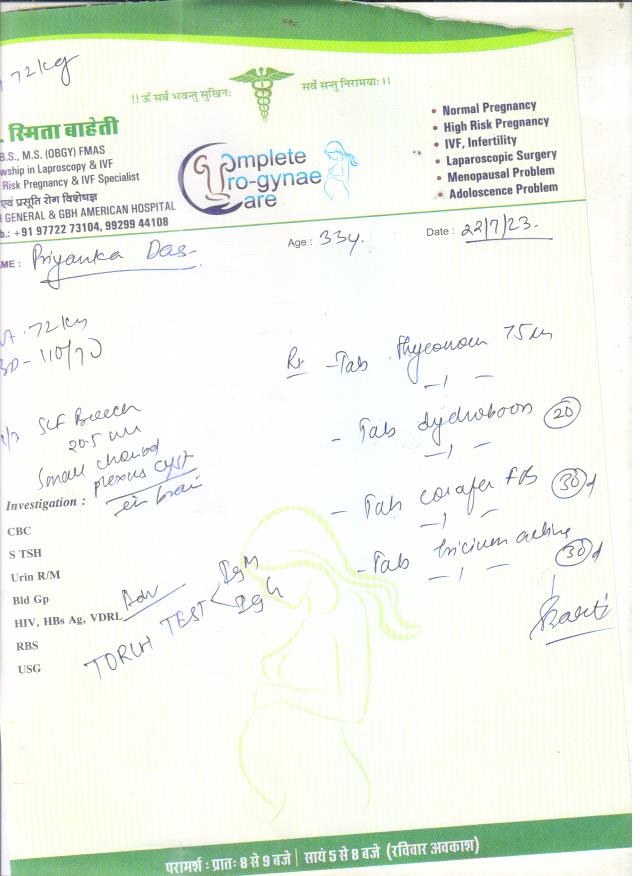 72kg
!! ॐ सर्वे भवन्तु सुखिनः सर्वे सन्तु निरामयाः ।।
. स्मिता बाहेती
B.S., M.S. (OBGY) FMAS
wship in Laproscopy & IVF
Risk Pregnancy & IVF Specialist
एवं प्रसूति रोग विशेषज्ञ
GENERAL & GBH AMERICAN HOSPITAL
b.: +91 97722 73104, 99299 44108
Complete
Uro-gynae
Care
• Normal Pregnancy
• High Risk Pregnancy
• IVF, Infertility
• Laparoscopic Surgery
• Menopausal Problem
• Adoloscence Problem
ME : Priyanka Das
Age : 33y.
Date : 22/7/23.
72kg
110/70
SLF Breech
20.5
Small choroid
plexus cyst
in brain
Rx - Tab 75
- Tab 20
- Tab 30d
- Tab 30d
Investigation :
CBC
S TSH
Urin R/M
Bld Gp
HIV, HBs Ag, VDRL
RBS
USG
Adv
TORCH TEST < IgM
IgG
परामर्श : प्रातः 8 से 9 बजे | सायं 5 से 8 बजे (रविवार अवकाश)